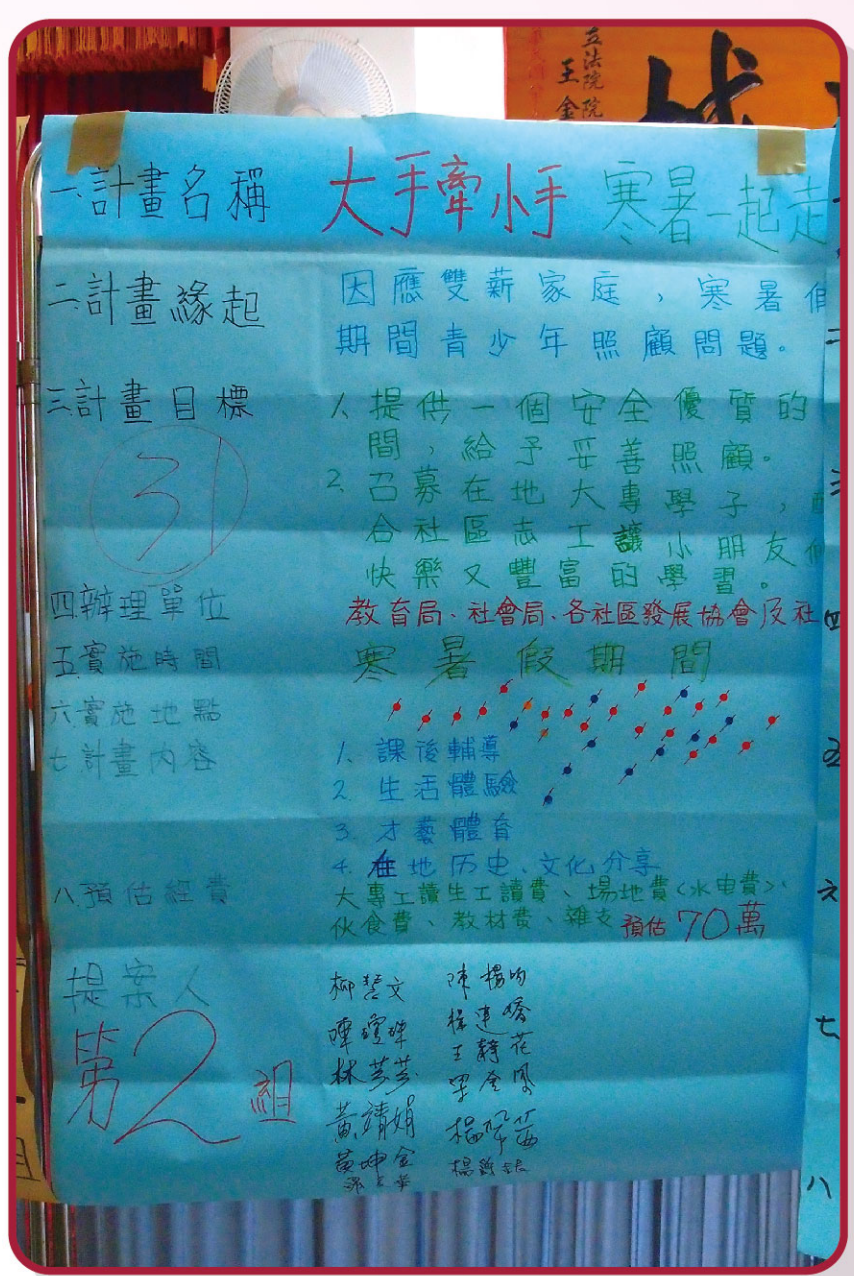 立法院院
王金
一.計畫名稱 大手牽小手 寒暑一起走
二.計畫緣起 因應雙薪家庭，寒暑假
期間青少年照顧問題。
三.計畫目標 1. 提供一個安全優質的
間，給予妥善照顧。
2. 召募在地大專學子，配
合社區志工讓小朋友
快樂又豐富的學習。
31
四.辦理單位 教育局、社會局、各社區發展協會及社
五.實施時間 寒暑假期間
六.實施地點
七.計畫內容 1. 課後輔導
2. 生活體驗
3. 才藝體育
4. 在地历史、文化分享
八.預估經費 大專工讀生工讀費、場地費<水电費>、
伙食費、教材費、雜支 預估70萬
提案人
第2組
柳慧文 陳楊昀
陳瓊珠
林芸芸 王靜花
黃靖娟
黃坤金
二
三
四
五
六
七
八